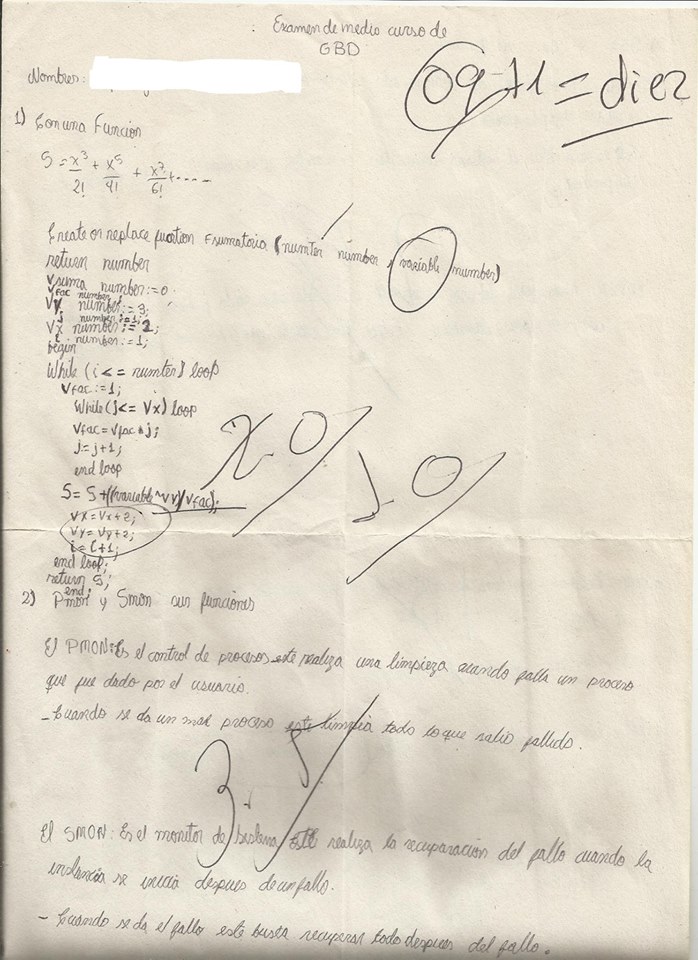 Examen de medio curso de
GBD
Nombres:
09+1 = diez
1) Con una Funcion
S = x³/2! + x⁵/4! + x⁷/6! + ....
Create or replace fuction Fsumatoria (numter number, variable number)
return number
Vsuma number:=0
Vfac number
Vy number:=3;
j number:=1;
Vx number:=2;
i number:=1;
begin
While (i<= numter) loop
Vfac:=1;
While (j<= Vx) loop
Vfac=Vfac*j;
j=j+1;
end loop
S= S+((variable^vy)/vfac);
Vx=Vx+2;
Vy=Vy+2;
i=i+1;
end loop;
return S;
end;
2) Pmon y Smon sus funciones
El PMON: Es el control de procesos este realiza una limpieza cuando falla un proceso
que fue dado por el usuario.
- Cuando se da un mal proceso este limpia todo lo que salio fallido.
El SMON: Es el monitor de sistema este realiza la recuparación del fallo cuando la
instancia se inicia despues de un fallo.
- Cuando se da el fallo este busca recuperar todo despues del fallo.